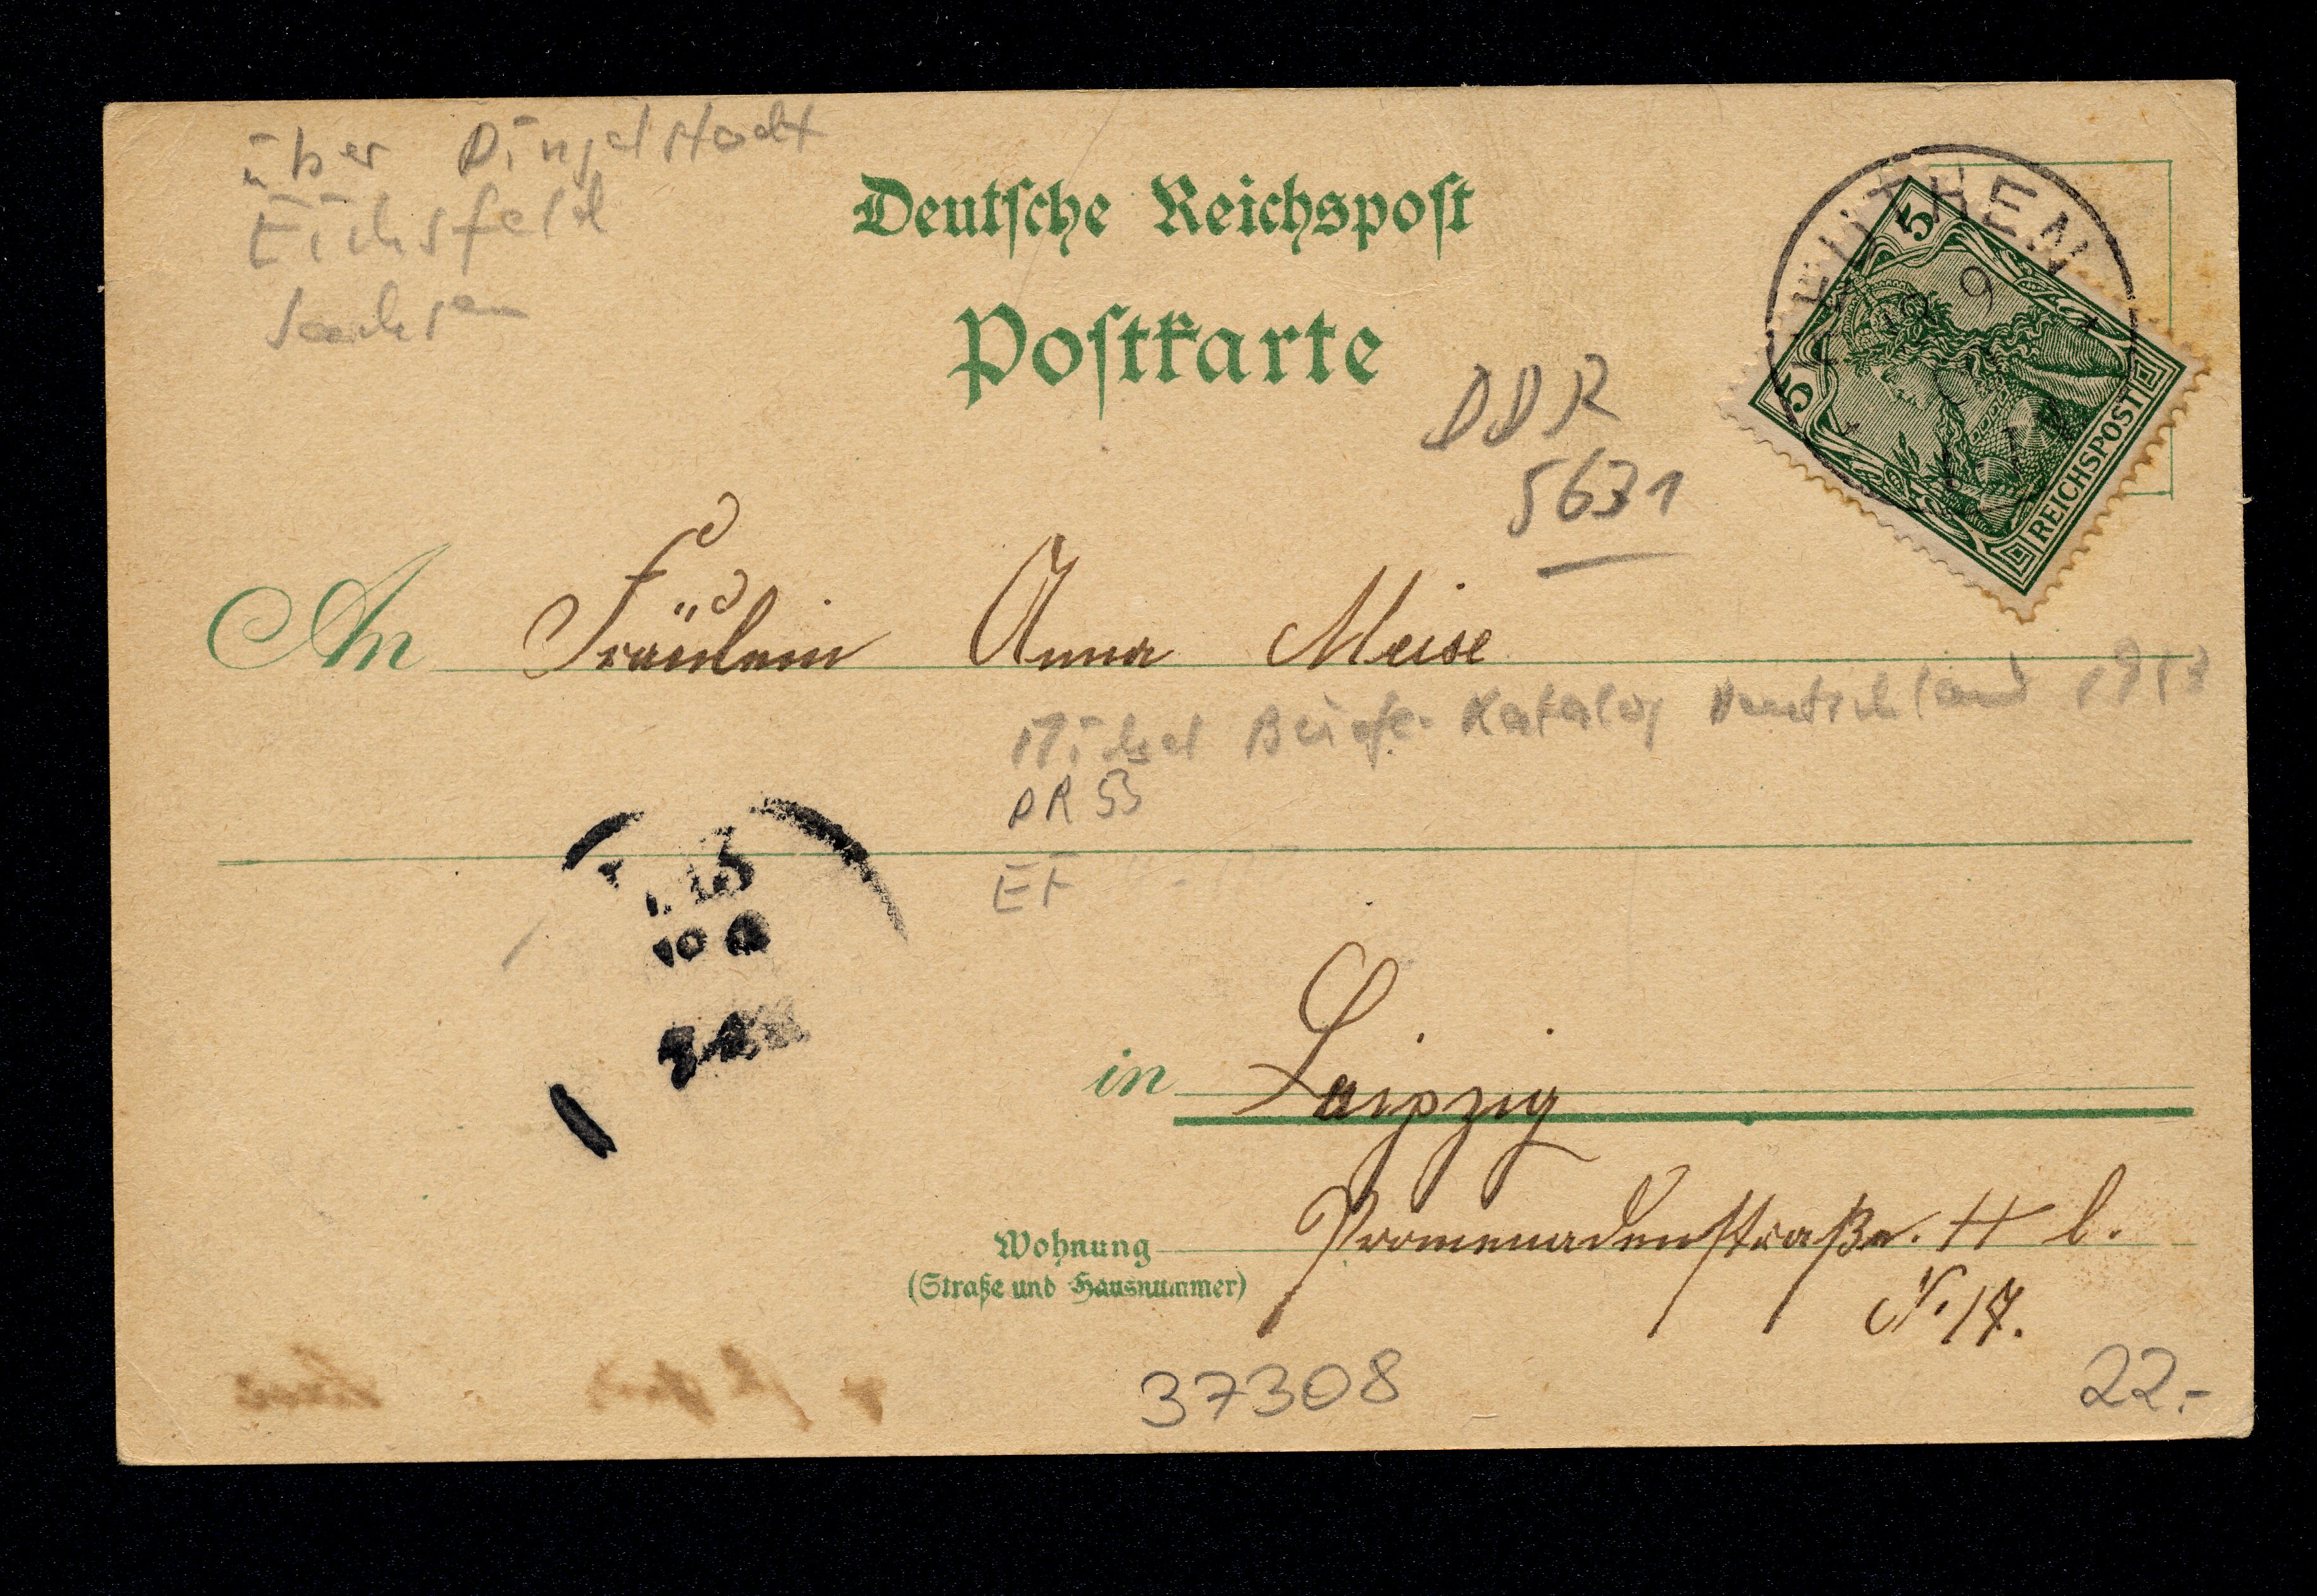 über Dingelstädt
Eichsfeld
Sachsen
Deutsche Reichspost
Postkarte
5
5
REICHSPOST
DDR
5631
An Fräulein Anna Meise
Michel Briefe-Katalog Deutschland
DR 53
EF
in Leipzig
Wohnung Promenadenstraße. H l.
(Straße und Hausnummer)
N. 17.
37308
22.-